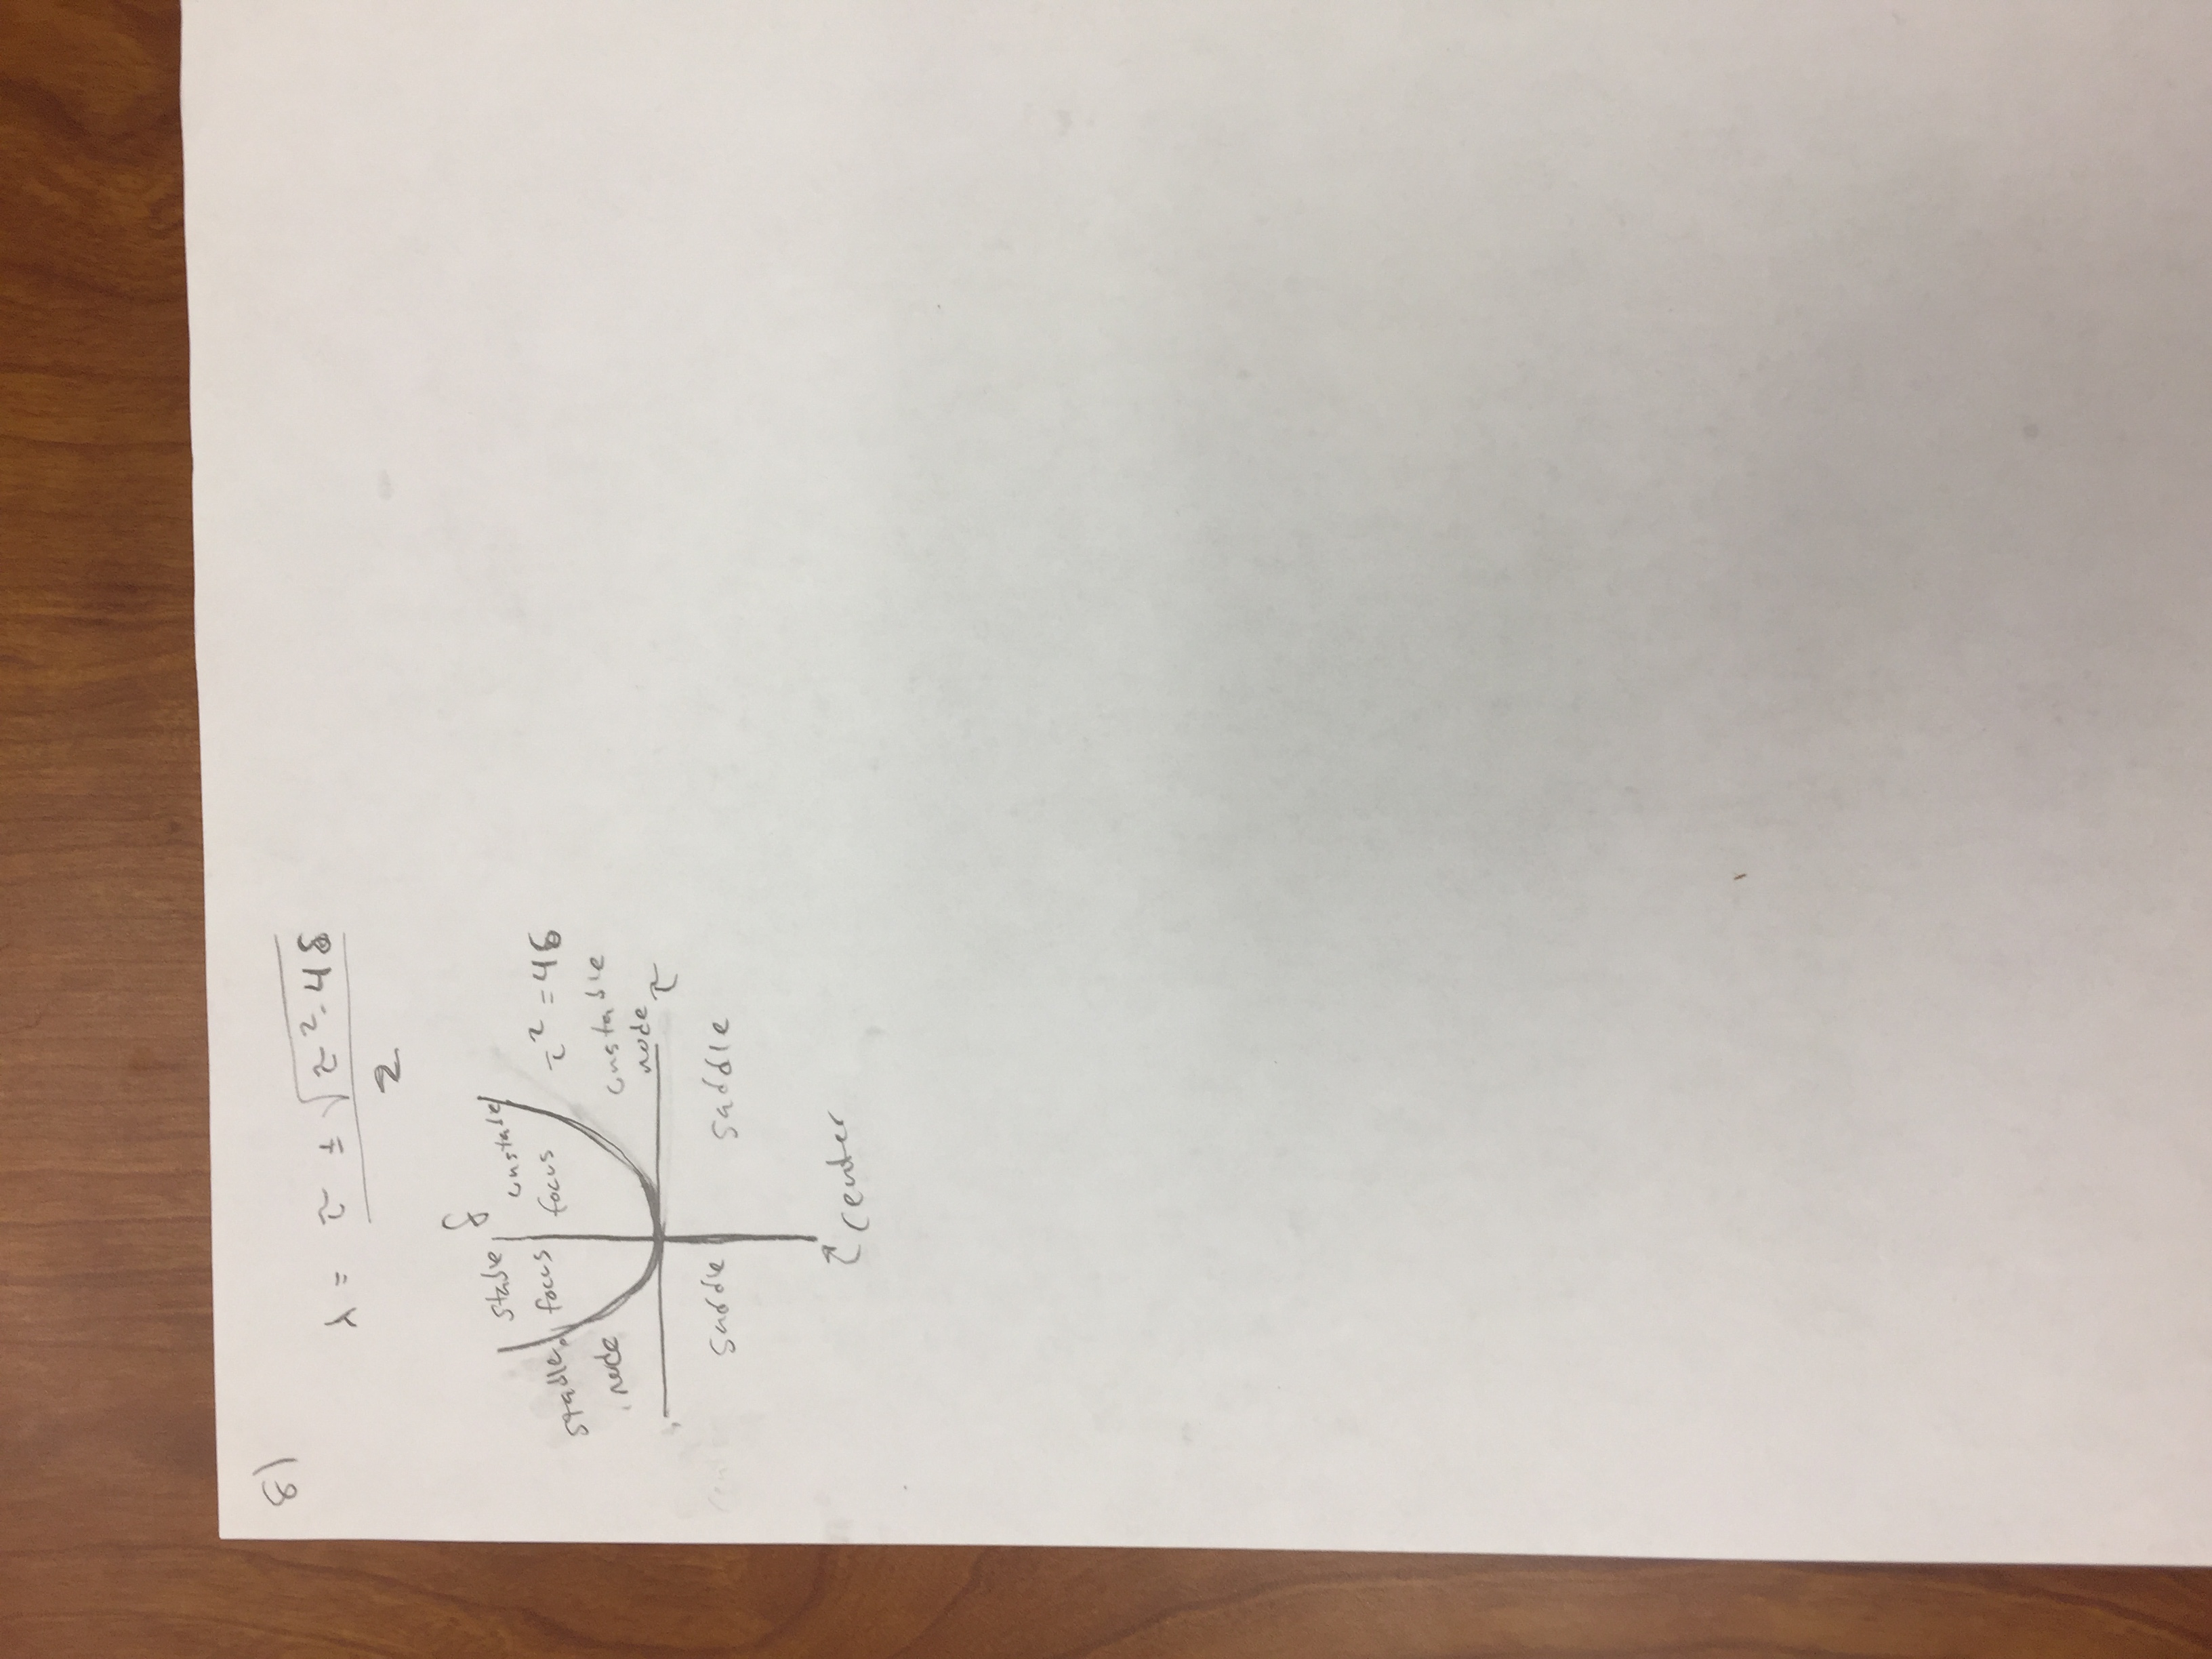 8)
λ = τ ± √τ² - 4δ
2
δ
stable
focus
unstable
focus
stable
node
τ² = 4δ
unstable
node
τ
saddle
saddle
center